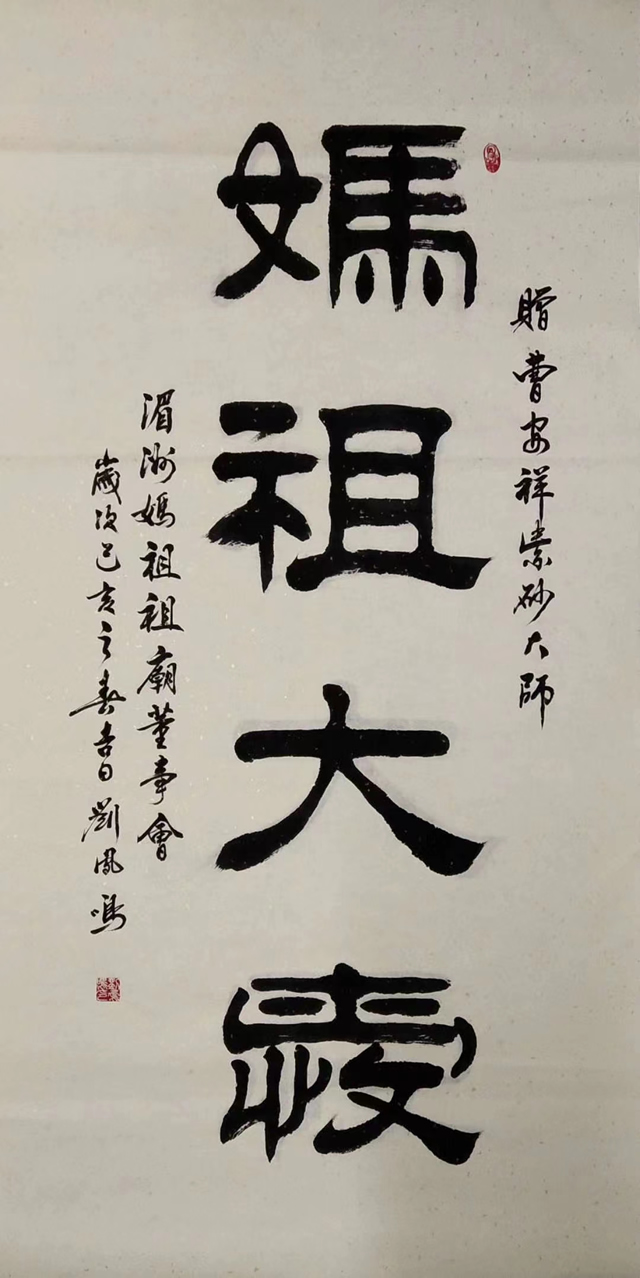 媽祖大愛
贈曹安祥紫砂大師
湄洲媽祖祖廟董事會
歲次己亥之春吉日劉鳳鳴